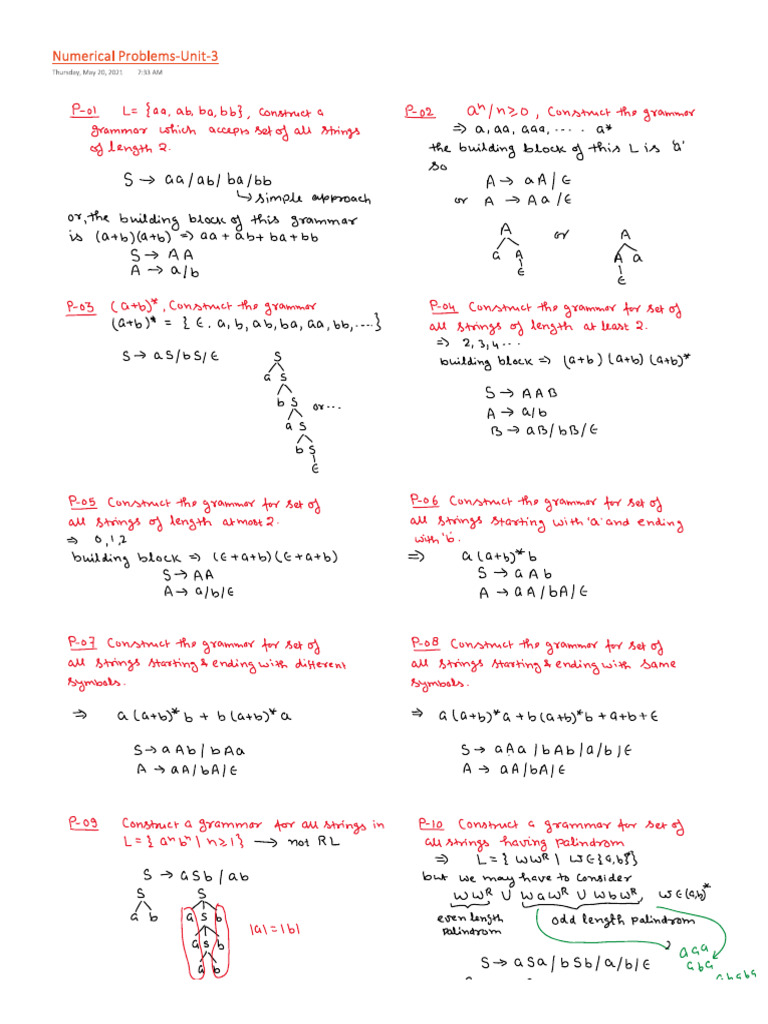 Numerical Problems-Unit-3
Thursday, May 20, 2021 7:33 AM
P-01 L = {aa, ab, ba, bb}, Construct a
grammar which accepts set of all strings
of length 2.
S → aa/ab/ba/bb
↳ simple approach
or, the building block of this grammar
is (a+b)(a+b) ⇒ aa + ab + ba + bb
S → AA
A → a/b
P-02 aⁿ/n≥0, Construct the grammar
⇒ a, aa, aaa, .... a*
the building block of this L is 'a'
so
A → aA/ϵ
or A → Aa/ϵ
A or A
a A A a
ϵ ϵ
P-03 (a+b)*, Construct the grammar
(a+b)* = {ϵ. a, b, ab, ba, aa, bb, ....}
S → aS/bS/ϵ
S
a S
b S or...
a S
b S
ϵ
P-04 Construct the grammar for set of
all strings of length at least 2.
⇒ 2, 3, 4 ...
building block ⇒ (a+b) (a+b) (a+b)*
S → AAB
A → a/b
B → aB/bB/ϵ
P-05 Construct the grammar for set of
all strings of length atmost 2.
⇒ 0, 1, 2
building block ⇒ (ϵ+a+b)(ϵ+a+b)
S → AA
A → a/b/ϵ
P-06 Construct the grammar for set of
all strings starting with 'a' and ending
with 'b'.
⇒ a(a+b)*b
S → aAb
A → aA/bA/ϵ
P-07 Construct the grammar for set of
all strings starting & ending with different
symbols.
⇒ a(a+b)*b + b(a+b)*a
S → aAb/bAa
A → aA/bA/ϵ
P-08 Construct the grammar for set of
all strings starting & ending with same
symbols.
⇒ a(a+b)*a + b(a+b)*b + a+b+ϵ
S → aAa/bAb/a/b/ϵ
A → aA/bA/ϵ
P-09 Construct a grammar for all strings in
L = {aⁿbⁿ | n≥1} → not RL
S → aSb/ab
S S
a b a S b
a S b
a b
|a|=|b|
P-10 Construct a grammar for set of
all strings having palindrom
⇒ L = {WWᴿ | W∈{a,b}*}
but we may have to consider
WWᴿ ∪ WaWᴿ ∪ WbWᴿ, W∈(a,b)*
even length
palindrom
odd length palindrom
aaa
aba
ababa
S → aSa/bSb/a/b/ϵ